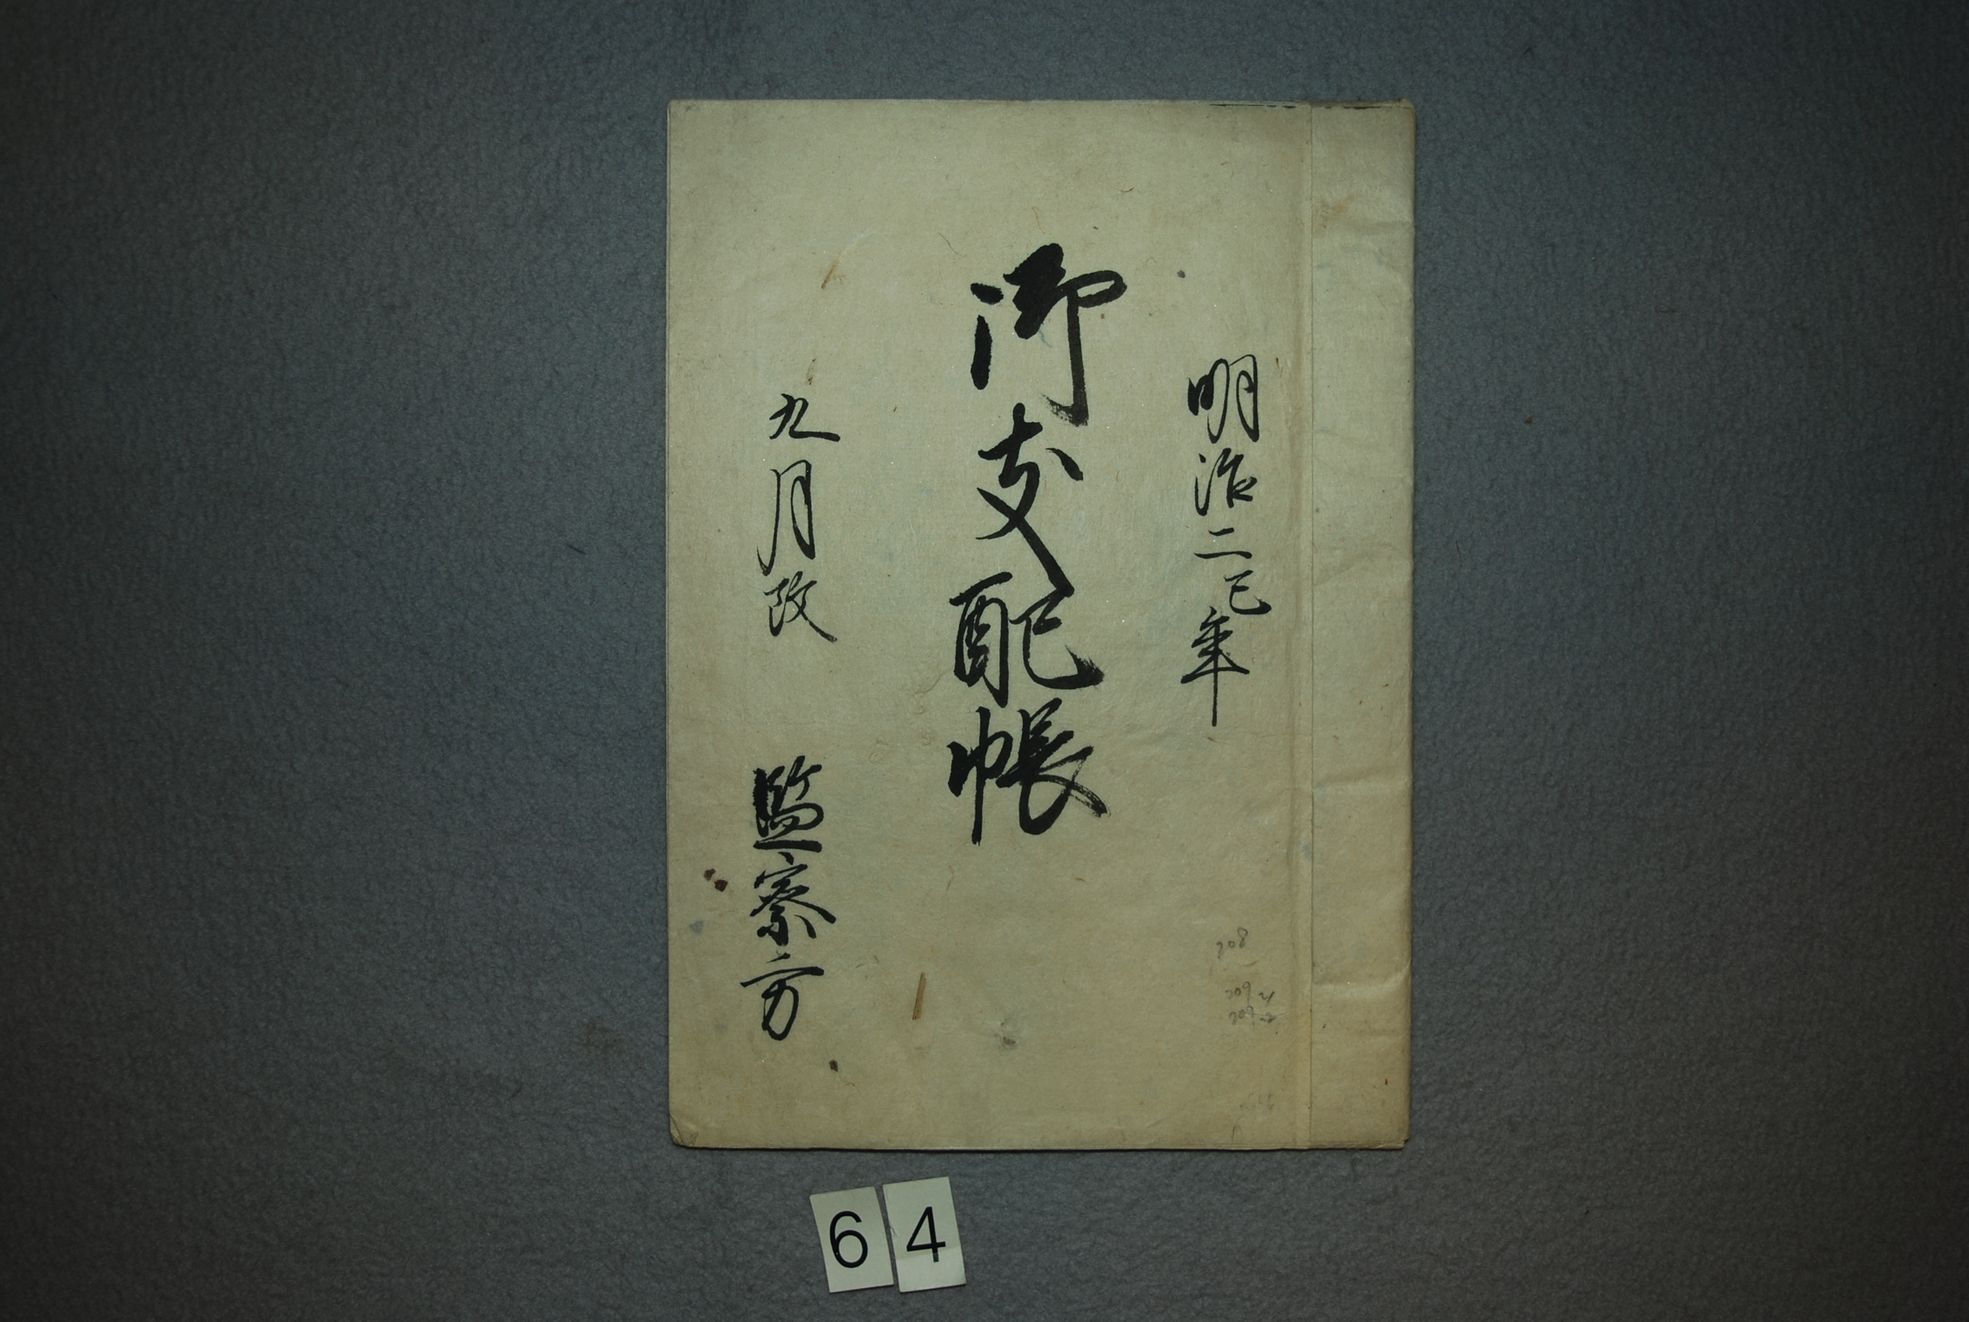 明治二巳年
御支配帳
九月改 監察方
208
209-1
209-2
64